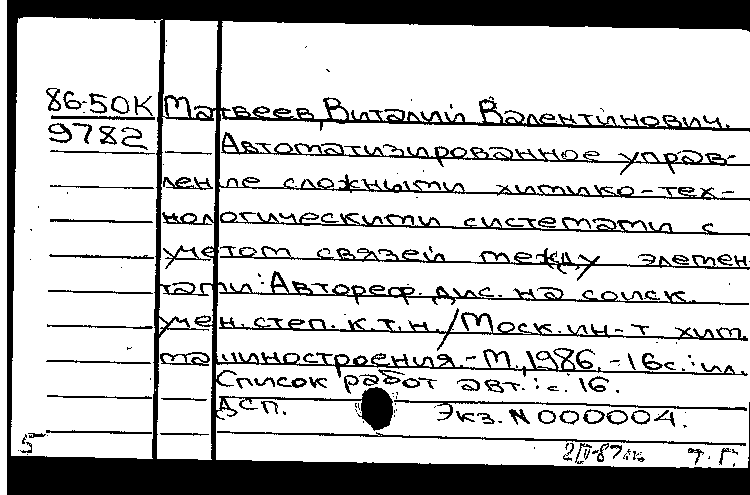 86-50К Матвеев, Виталий Валентинович.
9782 Автоматизированное управ-
ление сложными химико-тех-
нологическими системами с
учетом связей между элемен
тами: Автореф. дис. на соиск.
учен. степ. к.т.н. / Моск. ин-т хим.
машиностроения. - М., 1986. - 16с.: ил.
Список работ авт.: с. 16.
ДСП. Экз. N 000004.
5 Т. Г.